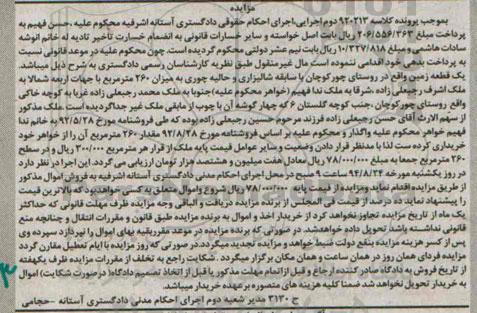 مزایده
بموجب پرونده کلاسه ۹۲۰۲۱۳ دوم اجرایی،اجرای احکام حقوقی دادگستری آستانه اشرفیه محکوم علیه ،حسن فهیم به
پرداخت مبلغ ۲۰۶/۵۵۶/۳۶۳ ریال بابت اصل خواسته و سایر خسارات قانونی به انضمام خسارت تاخیر تادیه له خانم انوشه
سادات هاشمی و مبلغ ۱۰/۳۲۷/۸۱۸ ریال بابت نیم عشر دولتی محکوم گردیده است. چون محکوم علیه در موعد قانونی نسبت
به پرداخت بدهی خود اقدامی ننموده است مال غیر منقول طبق نظریه کارشناسان رسمی دادگستری به شرح ذیل میباشد.
یک قطعه زمین واقع در روستای چورکوچان با سابقه شالیزاری و حالیه چوری به میزان ۲۶۰ مترمربع با جهات اربعه شمالا به
ملک اشرف رجبعلی زاده ،شرقا به ملک ندا فهیم (خواهر محکوم علیه)جنوبا به ملک محمد رجبعلی زاده غربا به کوچه خاکی
واقع روستای چورکوچان ،جنب کوچه گلستان ۶ که چهار گوشه آن با چوب از مابقی ملک غیر جداگردیده است .ملک مذکور
از سهم الارث آقای حسن رجبعلی زاده فرزند مرحوم حسین رجبعلی زاده بوده که طی فروشنامه مورخ ۹۲/۵/۲۸ به خانم ندا
فهیم خواهر محکوم علیه واگذار و محکوم علیه بر اساس فروشنامه مورخ ۹۲/۸/۲۸ مقدار ۲۶۰ مترمربع آن را از خواهر خود
خریداری کرده ست لذا با مدنظر قرار دادن وضعیت و سایر عوامل قیمت پایه ملک از قرار هر مترمربع ۳۰۰/۰۰۰ ریال و در سطح
۲۶۰ مترمربع جمعا به مبلغ ۷۸/۰۰۰/۰۰۰ ریال معادل هفت میلیون و هشتصد هزار تومان ارزیابی می گردد. این اجرا در نظر دارد
در روز یکشنبه مورخه ۹۴/۸/۲۴ ساعت ۹ صبح در محل اجرای احکام مدنی دادگستری آستانه اشرفیه به فروش اموال مذکور
از طریق مزایده اقدام نماید ومزایده از قیمت پایه ۷۸/۰۰۰/۰۰۰ ریال شروع واموال متعلق به کسی خواهدبود که بالاترین قیمت
را پیشنهاد نماید ده درصد از قیمت فی المجلس از برنده مزایده دریافت و الباقی وجه مزایده ظرف مهلت قانونی که حداکثر
یک ماه از تاریخ مزایده تجاوز نخواهد کرد از خریدار اخذ و اموال به برنده مزایده طبق قانون و مقررات انتقال و چنانچه منع
قانونی نداشته باشد تحویل داده خواهدشد. در صورتی که برنده مزایده در موعد مقرربقیه بهای اموال را نپردازد سپرده وی
پس از کسر هزینه مزایده بنفع دولت ضبط خواهد و مزایده تجدید میگردد.در صورتی که روز مزایده با ایام تعطیل مقارن گردد
مزایده فردای همان روز در همان ساعت و همان مکان برگزار میگردد . شکایت راجع به تخلف از مقررات مزایده ظرف یکهفته
از تاریخ فروش به دادگاه صادر کننده ارجاع و قبل ازاتمام مهلت مذکور یا قبل از اتخاذ تصمیم دادگاه( در صورت شکایت) اموال
به خریدار تحویل نخواهد شد ضمنا کلیه هزینه های متصوره برعهده خریدار میباشد.
ح ۳۱۳۰ مدیر شعبه دوم اجرای احکام مدنی دادگستری آستانه –حجامی
۳